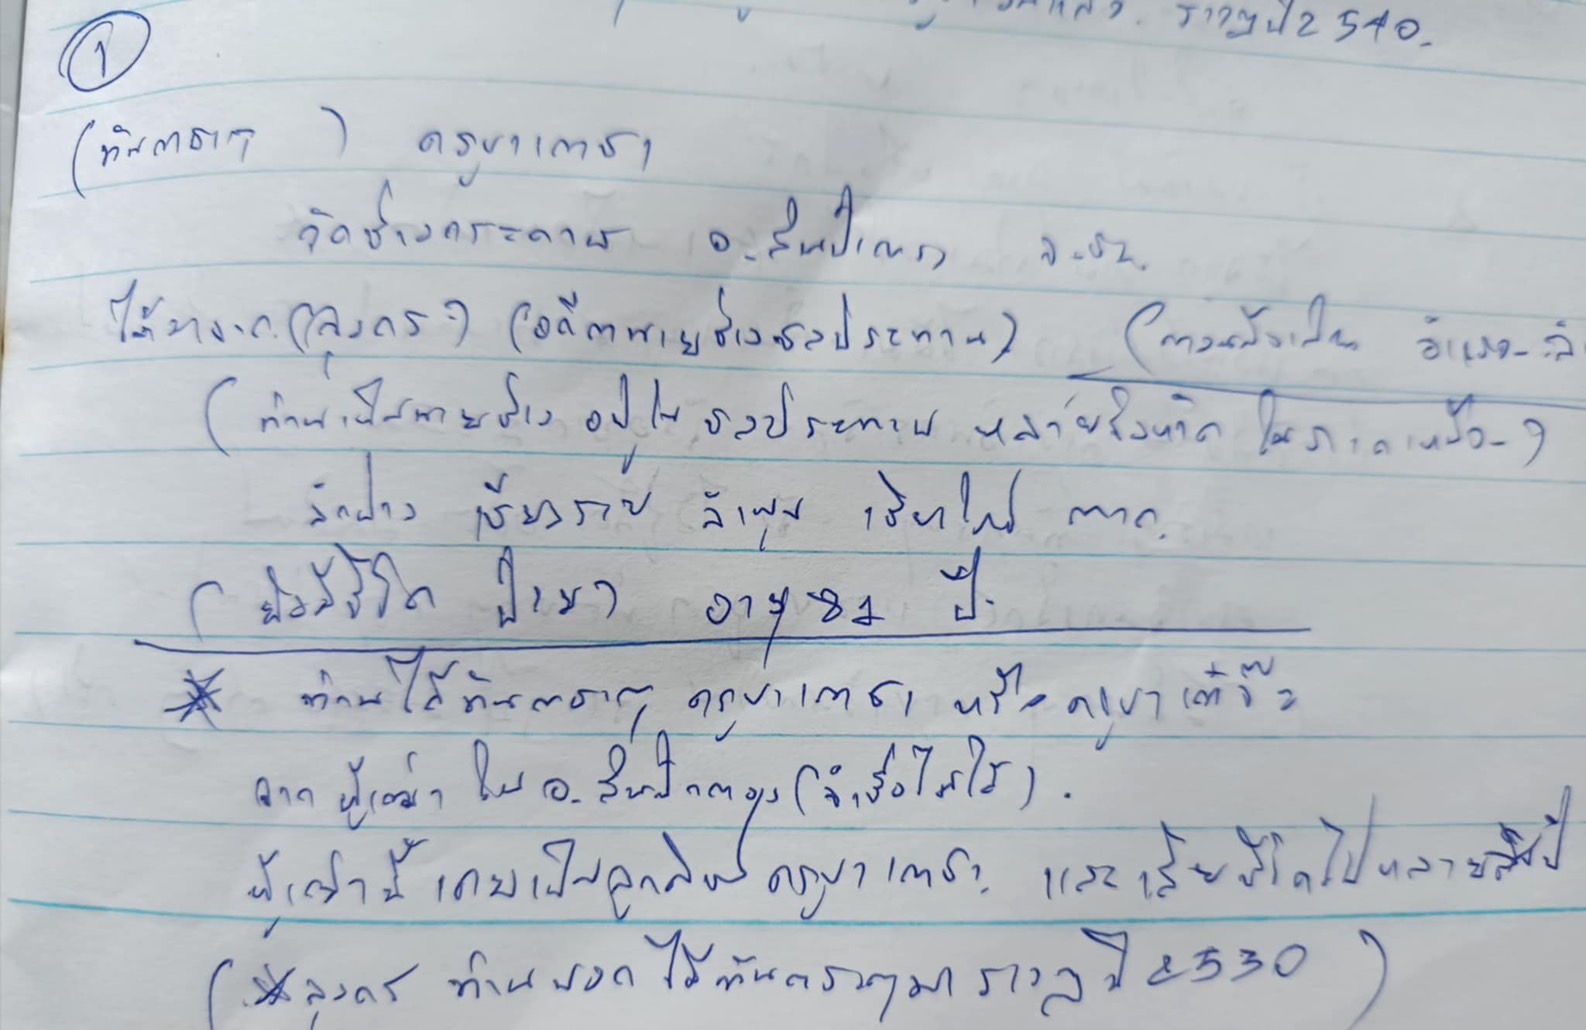 ราวๆ ปี 2540.
①
(ทันตราชาญ ) ครูบาเตชา
วัดช่างกระดาษ อ.สันป่าตอง จ.ชม.
ได้มาจาก (ลุงกร) (อดีตนายช่างชลประทาน)
(ท่านเป็นนายช่าง อยู่ใน ชลประทาน หลายจังหวัด ในภาคเหนือ)
ลำปาง เชียงราย ลำพูน เชียงใหม่ ตาก.
(ยังมีชีวิต อายุ 81 ปี.
* ท่านได้ ครูบาเตชา หรือ ครูบา
จาก ผู้เฒ่า ใน อ.สันป่าตอง (จำชื่อไม่ได้).
ผู้เฒ่านี้ เคยเป็นลูกศิษย์ ครูบาเตชา. และ เสียชีวิตไปหลายสิบปี
(* ลุงกร ท่านบอก ได้ มา ราวๆ ปี 2530)